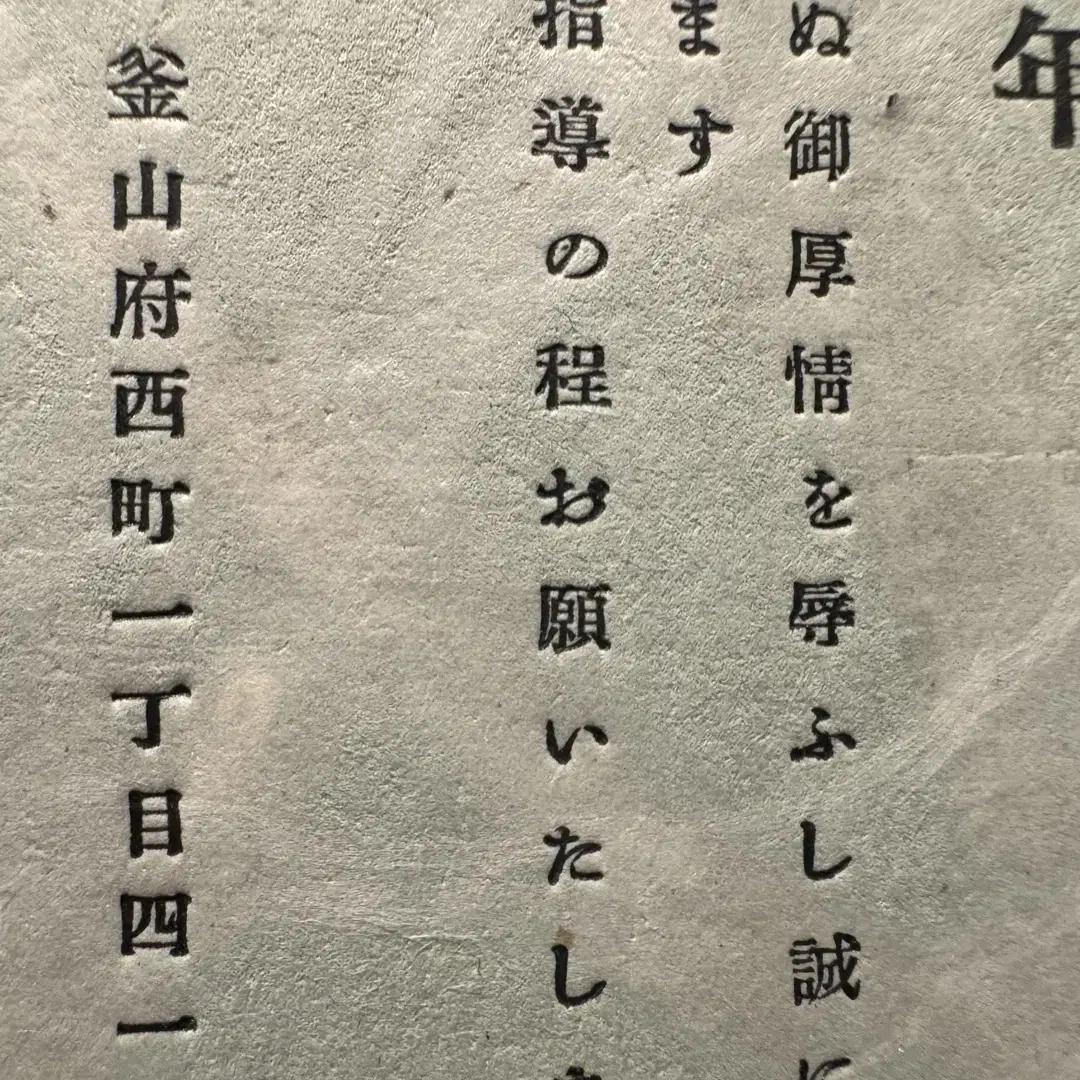 年
ぬ御厚情を辱ふし誠に
ます
指導の程お願いたしま
釜山府西町一丁目四一